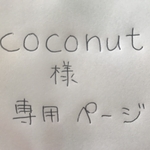 coconut
様
専用 ページ